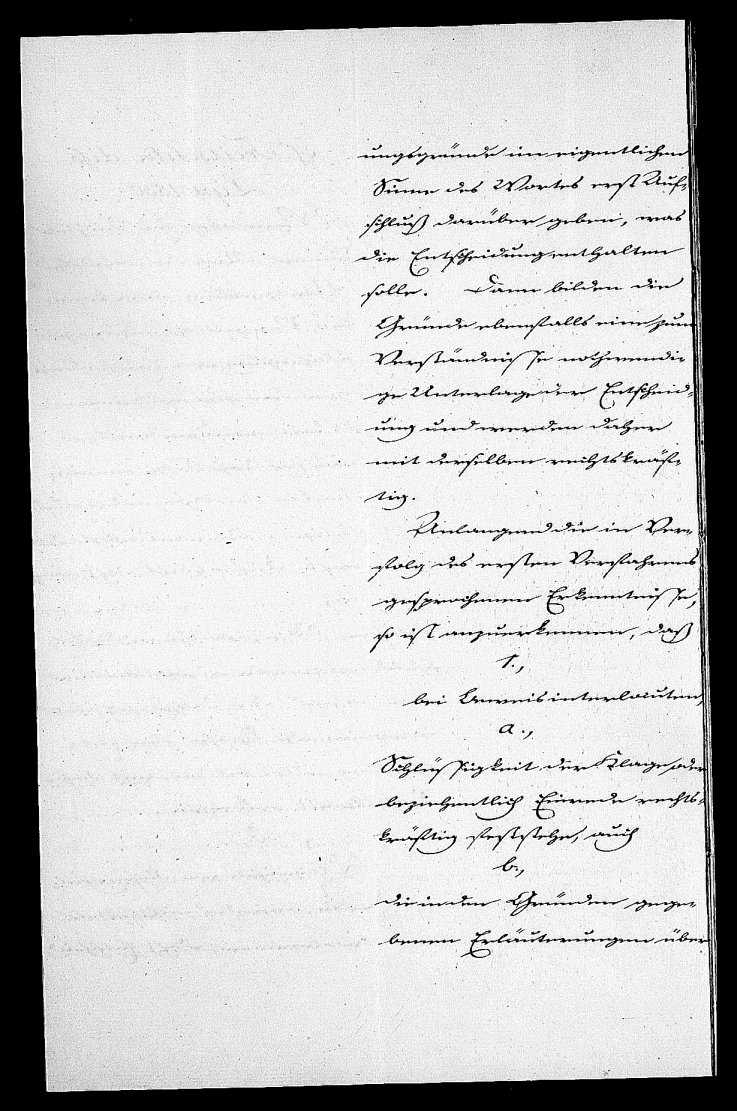 ungsgründe im eigentlichen
Sinne des Wortes erst Auf-
schluß darüber geben, was
die Entscheidung enthalten
solle. Dann bilden die
Gründe ebenfalls eine zum
Verständnisse nothwendi-
ge Unterlage der Entscheid-
ung und werden daher
mit derselben rechtskräf-
tig.
Anlangend die in Ver-
folg des ersten Verfahrens
gesprochenen Erkenntnisse,
so ist anzuerkennen, daß
1.,
bei Beweisinterlocuten,
a.,
Schlüssigkeit der Klage oder
beziehentlich Einrede rechts-
kräftig feststehe, auch
b.,
die in den Gründen gege-
benen Erläuterungen über